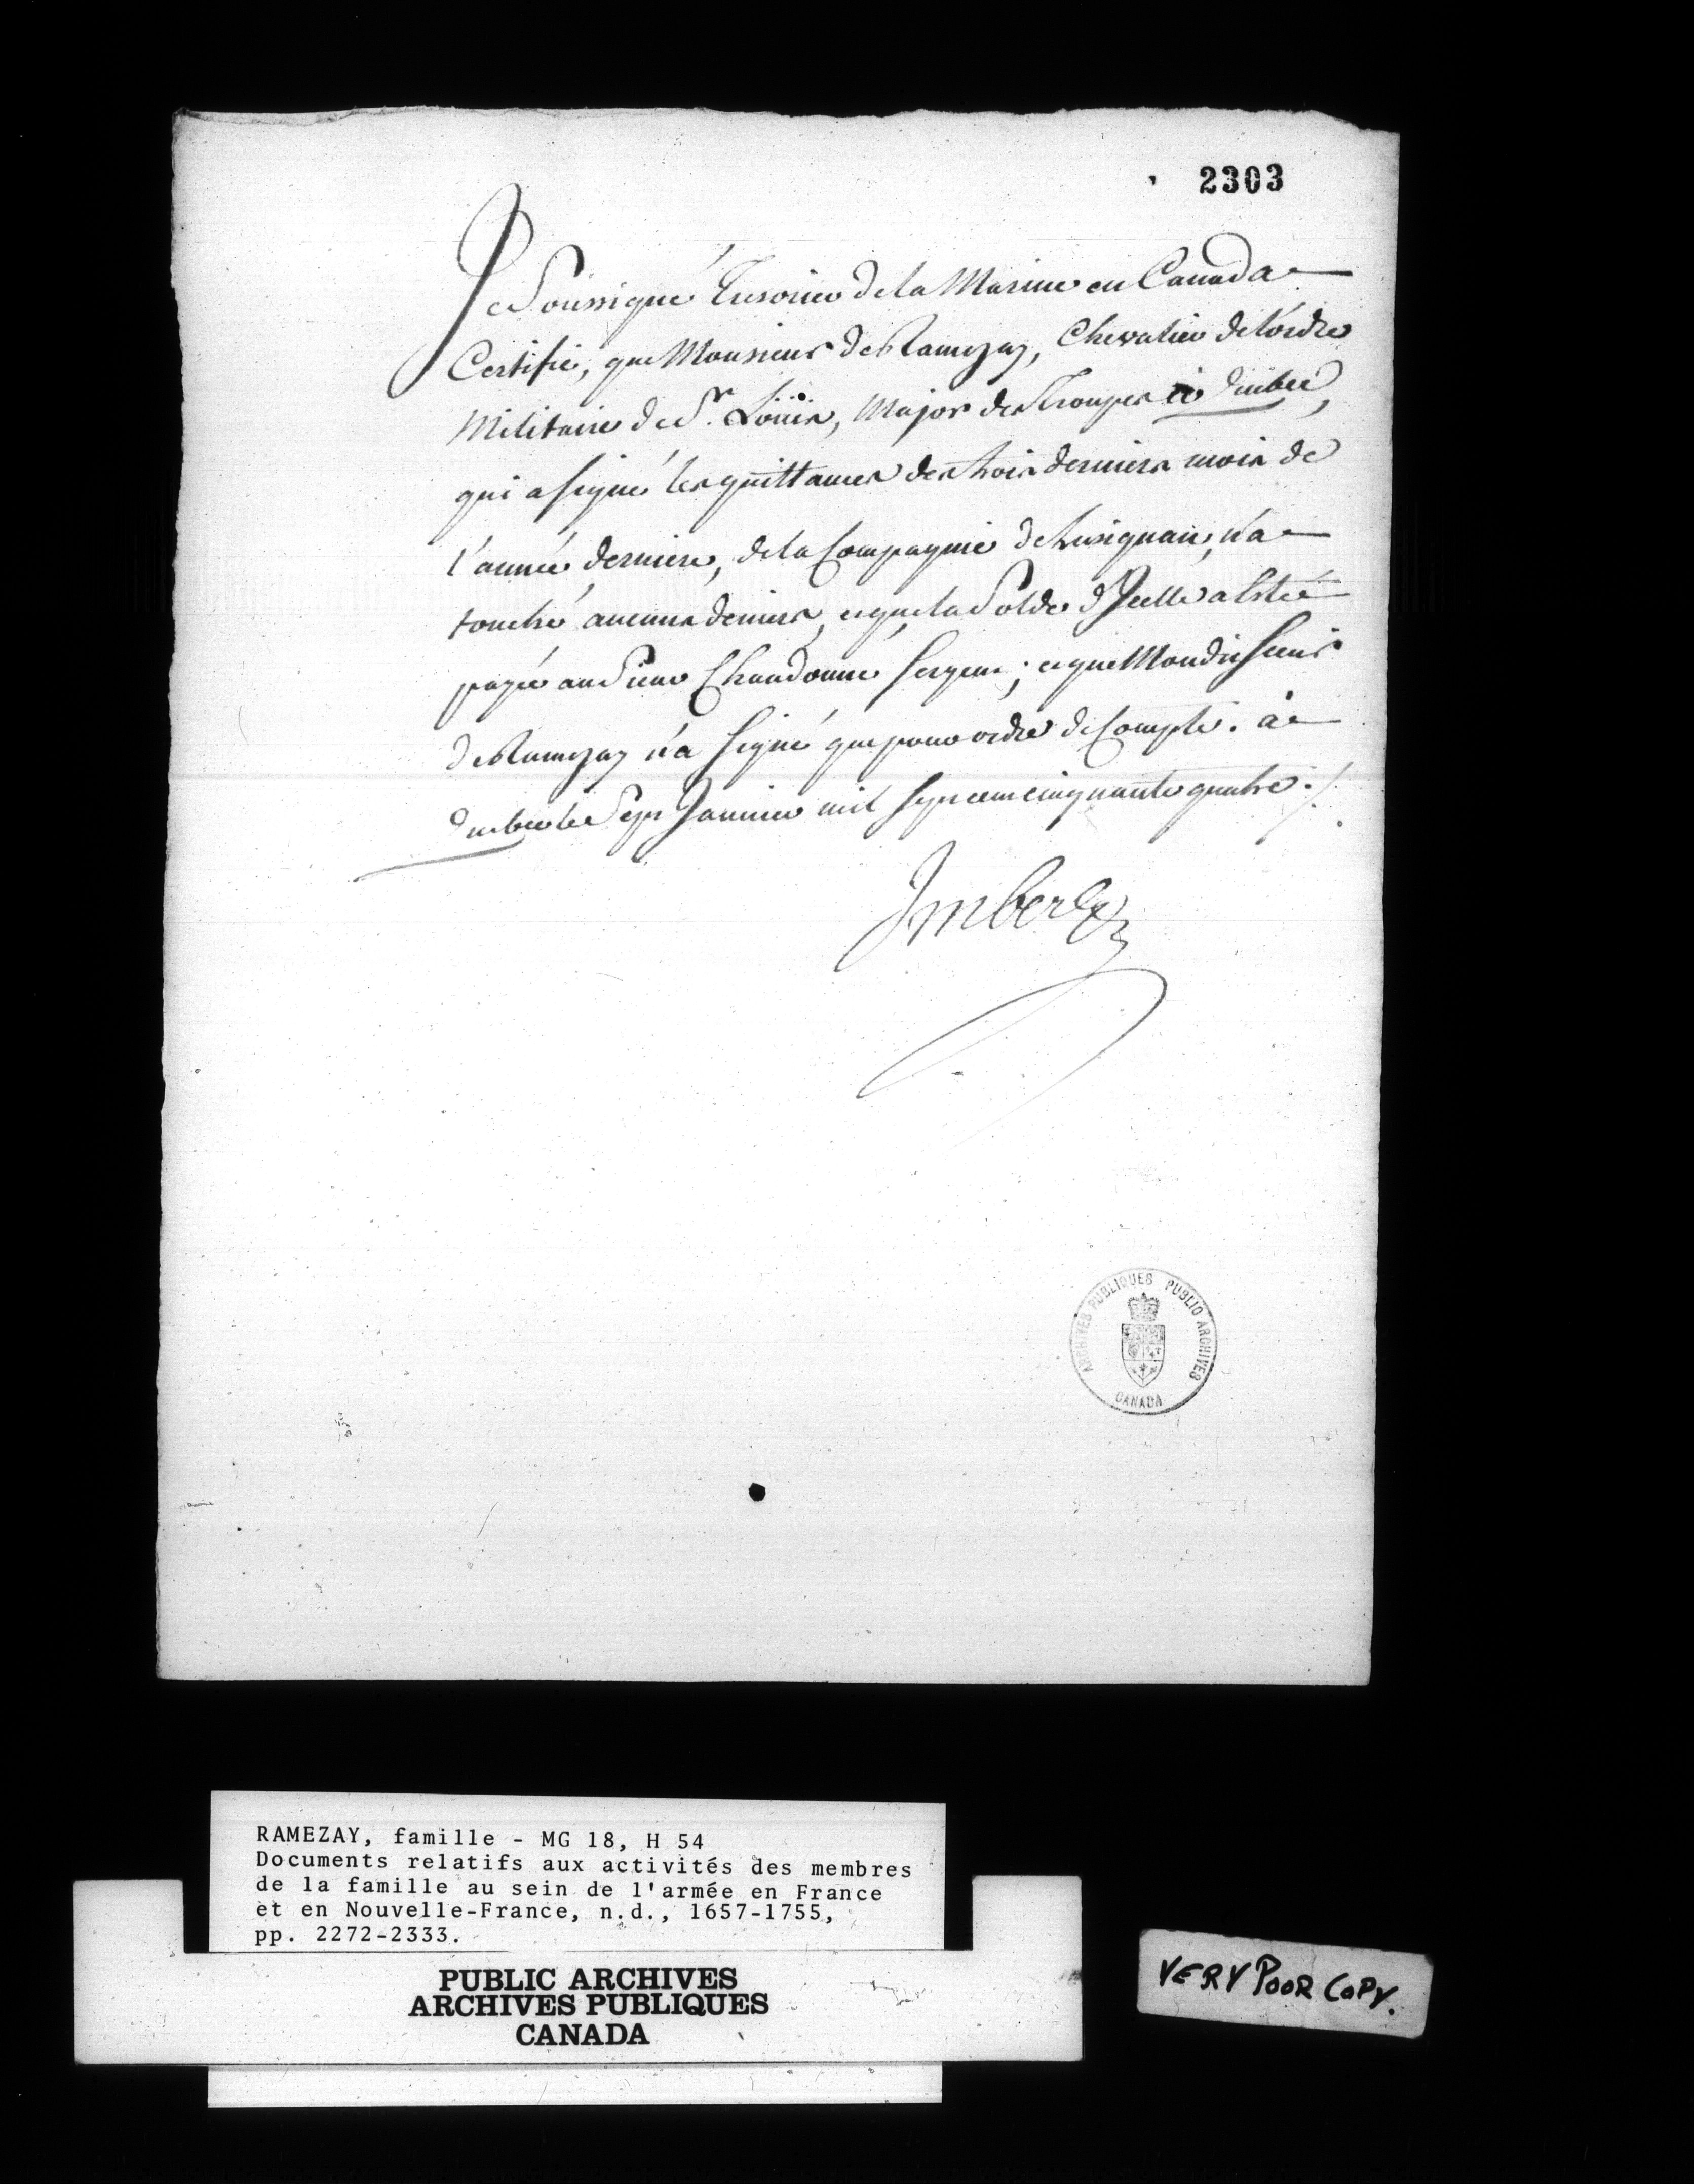 2303
Je Soussigné Trésorier de la Marine en Canada
Certifie, que Monsieur de Ramezay, Chevalier de l'ordre
Militaire de St. Loüis, Major des Troupes à Quebec,
qui a signé les quittances des trois derniers mois de
l'année derniere, de la Compagnie de Lusignan, n'a
touché aucuns deniers, et que la Solde d'Icelle a Esté
payée au Sieur Chaudonné sergent; et que Mondit sieur
de Ramezay n'a signé que pour ordre de Compte. à
Quebec le Sept Janvier mil sept cent cinquante quatre ./.
Imbert
ARCHIVES PUBLIQUES PUBLIC ARCHIVES
CANADA
RAMEZAY, famille - MG 18, H 54
Documents relatifs aux activités des membres
de la famille au sein de l'armée en France
et en Nouvelle-France, n.d., 1657-1755,
pp. 2272-2333.
PUBLIC ARCHIVES
ARCHIVES PUBLIQUES
CANADA
VERY POOR COPY.